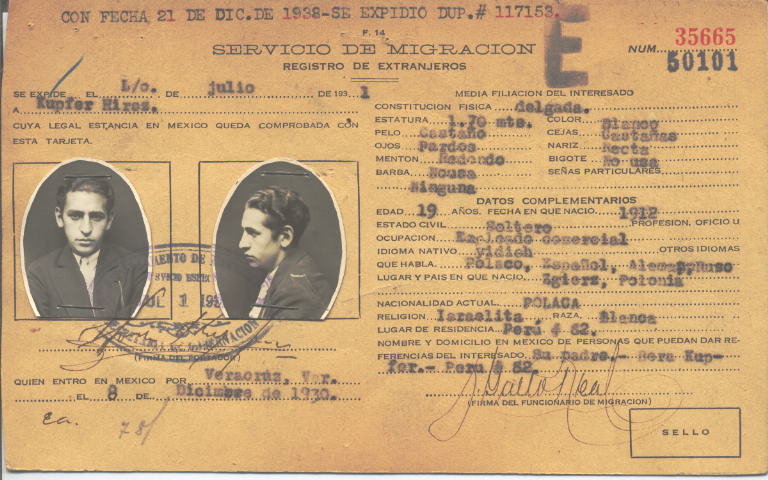 CON FECHA 21 DE DIC. DE 1938-SE EXPIDIO DUP.# 117153.
F. 14
E
SERVICIO DE MIGRACION
REGISTRO DE EXTRANJEROS
NUM. 35665
50101
SE EXPIDE EL L/o. DE julio DE 193 1
A Kupfer Hirsz.
CUYA LEGAL ESTANCIA EN MEXICO QUEDA COMPROBADA CON
ESTA TARJETA.
(FIRMA DEL PORTADOR)
QUIEN ENTRO EN MEXICO POR Veracruz, Ver.
EL 8 DE Diciembre de 1930.
ea.
78/
MEDIA FILIACION DEL INTERESADO
CONSTITUCION FISICA delgada.
ESTATURA 1.70 mts. COLOR Blanco
PELO Castaño CEJAS Castañas
OJOS Pardos NARIZ Recta
MENTON Redondo BIGOTE No usa
BARBA Nousa SEÑAS PARTICULARES
Ninguna
DATOS COMPLEMENTARIOS
EDAD 19 AÑOS. FECHA EN QUE NACIO 1912
ESTADO CIVIL Soltero PROFESION, OFICIO U
OCUPACION Empleado comercial
IDIOMA NATIVO yidich OTROS IDIOMAS
QUE HABLA Polaco, Español, Aleman, Ruso
LUGAR Y PAIS EN QUE NACIO Zgierz, Polonia
NACIONALIDAD ACTUAL POLACA
RELIGION Israelita, RAZA, Blanca
LUGAR DE RESIDENCIA Perú # 82.
NOMBRE Y DOMICILIO EN MEXICO DE PERSONAS QUE PUEDAN DAR RE-
FERENCIAS DEL INTERESADO Su padre.- Bera Kup-
fer.- Perú # 82.
(FIRMA DEL FUNCIONARIO DE MIGRACION)
SELLO